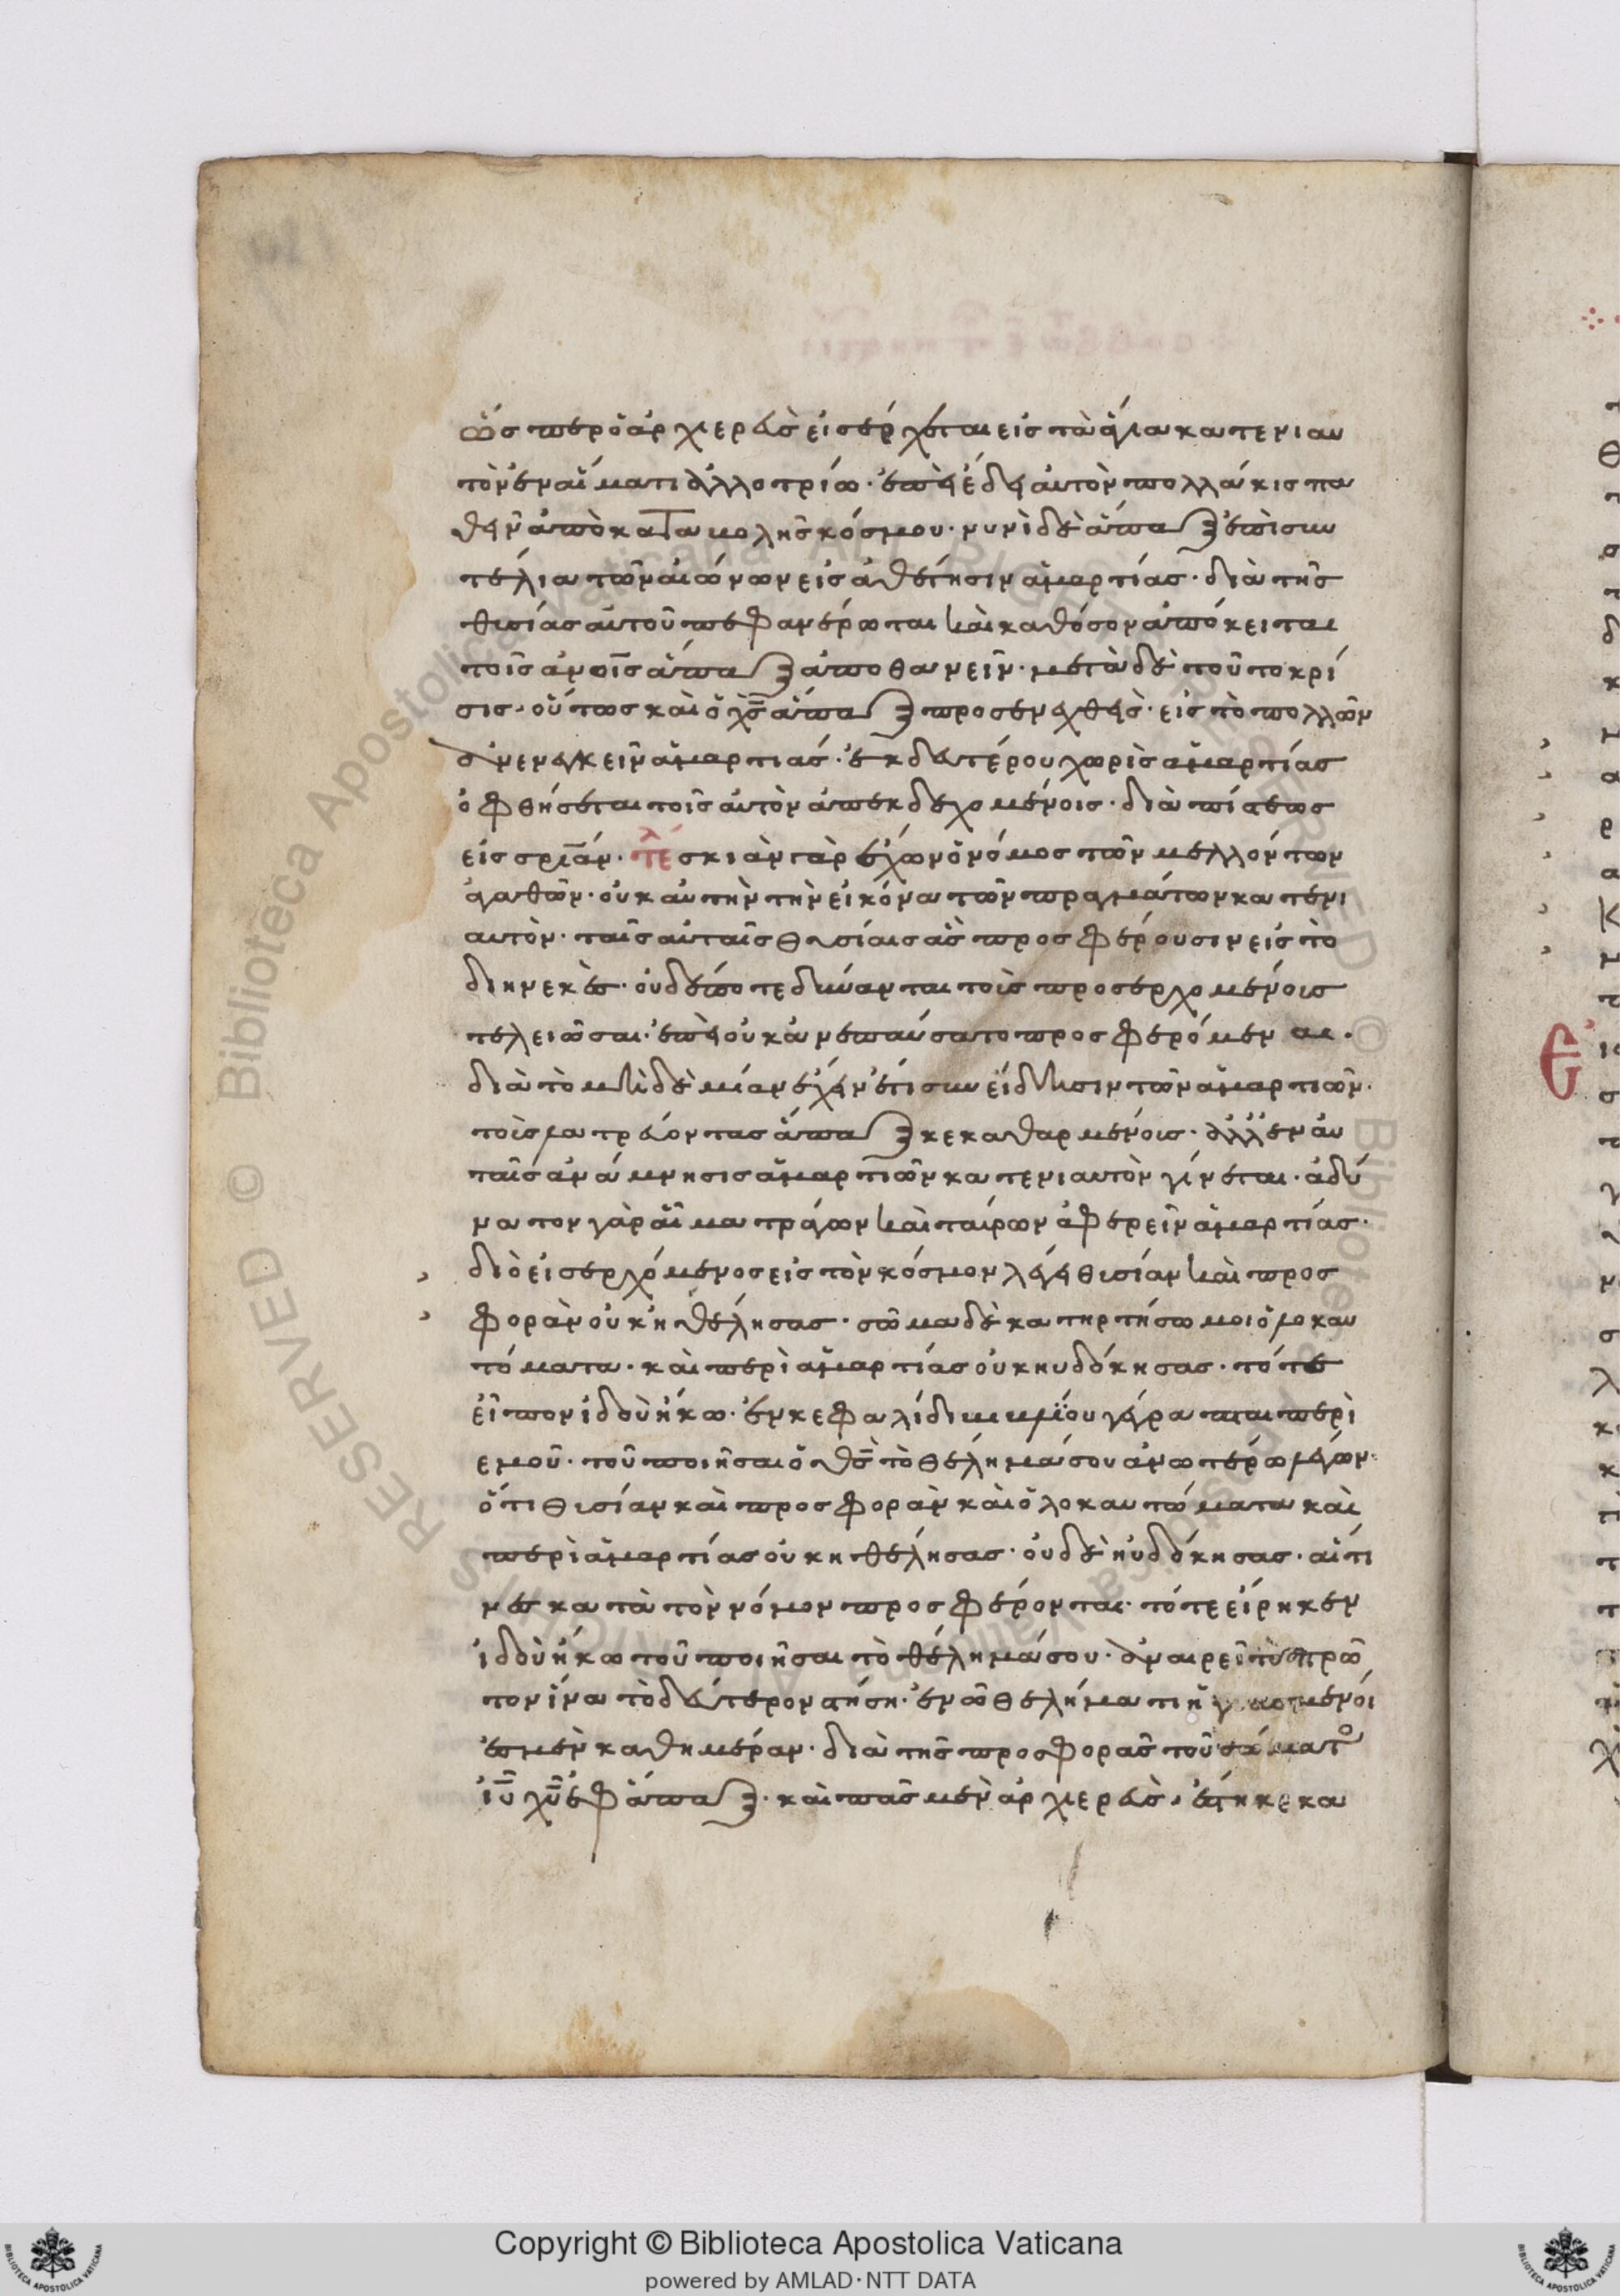 ὥσπερ ὁ ἀρχιερεὺς εἰσέρχεται εἰς τὰ ἅγια κατενιαυ
τὸν ἐν αἵματι ἀλλοτρίω· ἐπεὶ ἔδει αὐτὸν πολλάκις πα
θεῖν ἀπὸ καταβολῆς κόσμου· νυνὶ δὲ ἅπαξ ἐπὶ συν
τέλια τῶν αἰώνων εἰς ἀθέτησιν ἁμαρτίας· διὰ τῆς
θυσίας αὐτοῦ πεφανέρωται καὶ καθόσον ἀπόκειται
τοῖς ἀνοις ἅπαξ ἀποθανεῖν· μετὰ δὲ τοῦτο κρί
σις· οὕτως καὶ ὁ χς ἅπαξ προσενεχθεὶς· εἰς τὸ πολλῶν
ἀνενεγκεῖν ἁμαρτιάς· ἐκ δευτέρου χωρὶς ἁμαρτίας
ὀφθήσεται τοῖς αὐτὸν ἀπεκδεχομένοις· διὰ πίστεως
εἰς σριαν· τελ σκιὰν γὰρ ἔχων ὁ νόμος τῶν μελλόντων
ἀγαθῶν· οὐκ αὐτὴν τὴν εἰκόνα τῶν πραγμάτων κατένι
αυτὸν· ταῖς αὐταῖς θυσίαις ἃς προσφέρουσιν εἰς τὸ
διηνεκὲς· οὐδέποτε δύνανται τοὶς προσερχομένοις
τελειῶσαι· ἐπεὶ οὐκ ἀν ἐπαύσατο προσφερόμεναι·
διὰ τὸ μὴδὲ μίαν ἔχειν ἔτι συνείδησιν τῶν ἁμαρτιῶν·
τοὶς λατρεύοντας ἅπαξ κεκαθαρμένοις· ἀλλ ἐν αυ
ταῖς ἀνάμνησις ἁμαρτιῶν κατενιαυτὸν γίνεται· ἀδύ
νατον γὰρ αἷμα τράγων καὶ ταύρων ἀφερεῖν ἁμαρτίας·
διὸ εἰσερχόμενος εἰς τὸν κόσμον λέγει θυσίαν καὶ προσ
φορὰν οὐκ ἠθέλησας· σῶμα δὲ κατηρτήσω μοι ὁλοκαυ
τόματα· καὶ περὶ ἁμαρτίας οὐκ ηυδόκησας· τότε
εἶπον ἰδοὺ ἥκω· ἐν κεφαλίδι βιβλίου γέγραπται περὶ
εμοῦ· τοῦ ποιῆσαι ὁ θς τὸ θέλημά σου ἀνωτέρω λέγων·
ὅτι θυσίαν καὶ προσφορὰν καὶ ὁλοκαυτώματα καὶ
περὶ ἁμαρτίας οὐκ ηθέλησας· οὐδὲ ηὐδόκησας· αἵτι
νες κατὰ τὸν νόμον προσφέρονται· τότε εἴρηκεν
ἰδοὺ ἥκω τοῦ ποιῆσαι τὸ θέλημά σου· ἀναιρεῖ τὸ πρῶ
τον ἵνα τὸ δεύτερον στήση· ἐν ῶ θελήματι ἡγιασμένοι
ἐσμὲν καθημέραν· διὰ τῆς προσφορᾶς τοῦ σώματο
ιυ χυ ἐφάπαξ· καὶ πᾶς μὲν ἀρχιερεὺς· ἕστηκε κα